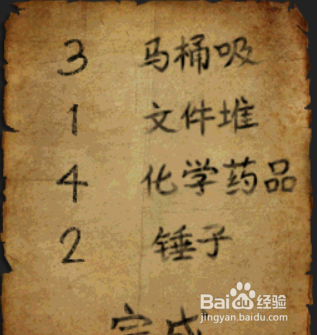 3 马桶吸
1 文件堆
4 化学药品
2 锤子
完成
Baidu 经验
jingyan.baidu.com